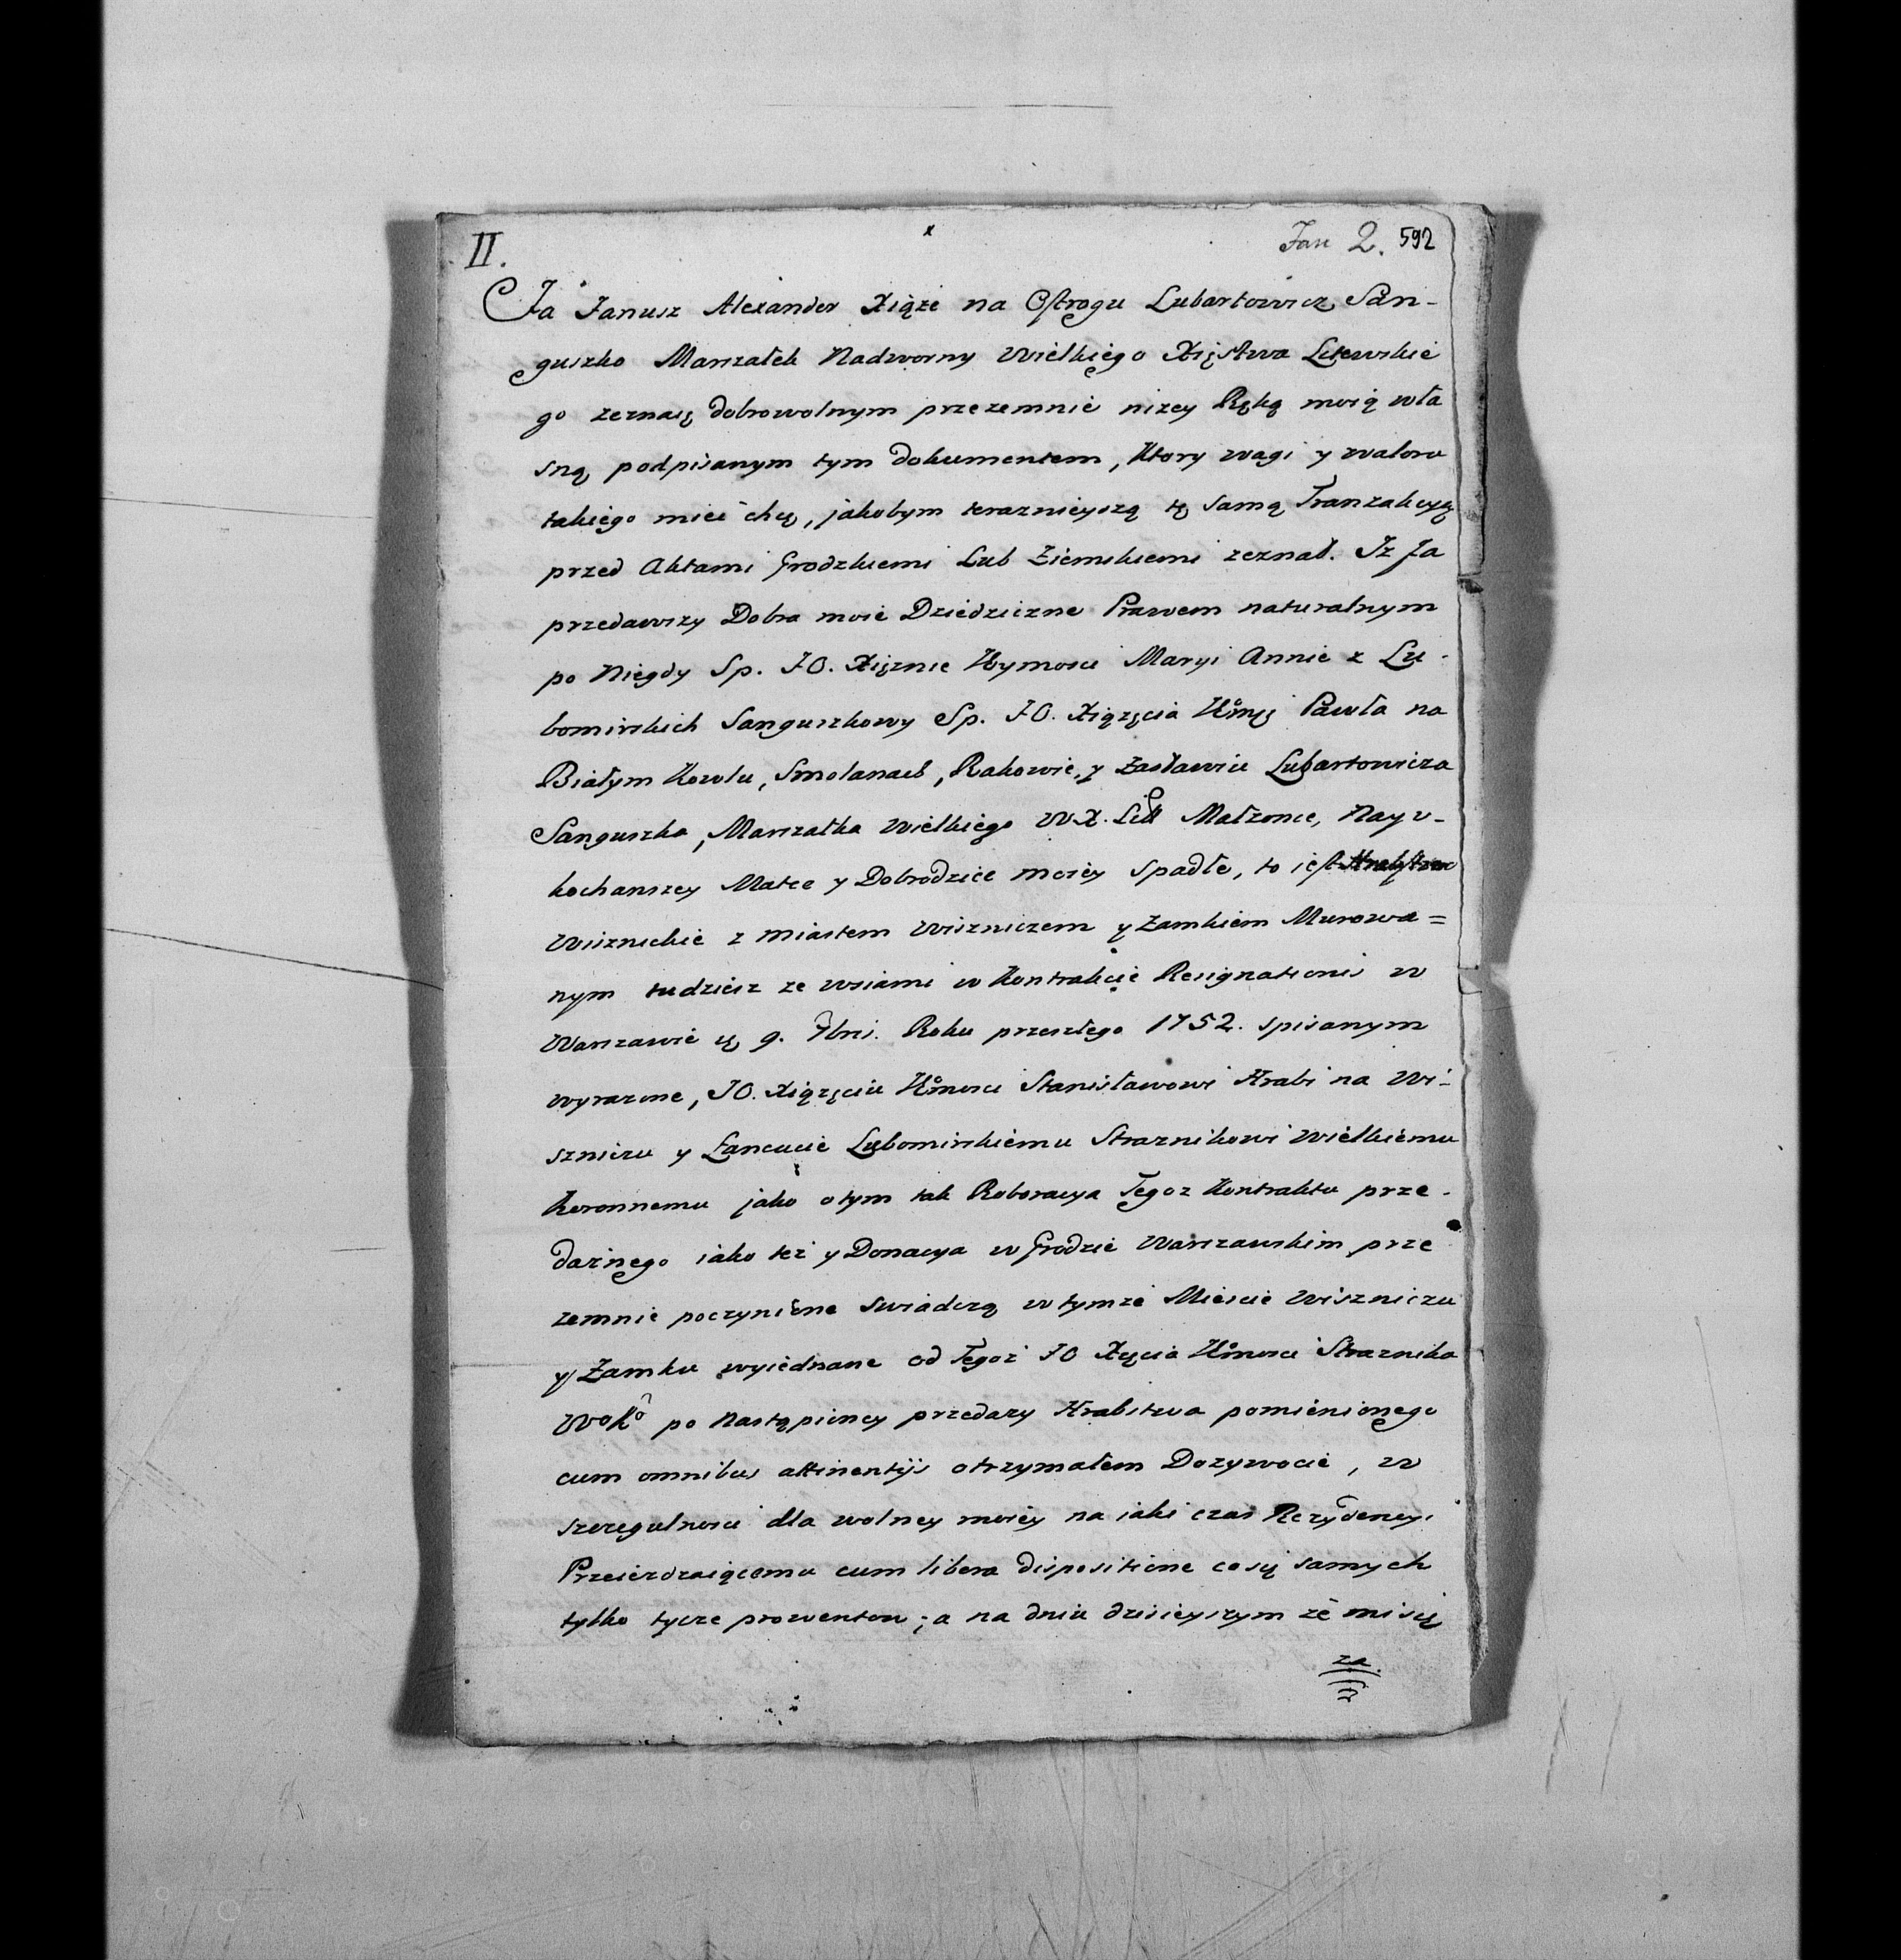 II.
x
Jan 2. 592
Ja Janusz Alexander Xiąże na Ostrogu Lubartowicz San-
guszko Marszałek Nadworny Wielkiego Xięstwa Litewskie
go zeznaię dobrowolnym przezemnie niżey Ręką moią wła
sną podpisanym tym dokumentem, Ktory wagi y waloru
takiego mieć chcę, jakobym teraznieyszą tę samą Tranzakcyą
przed Aktami Grodzkiemi Lub Ziemskiemi zeznał. Iz Ja
przedawszy Dobra moie Dziedziczne Prawem naturalnym
po Niegdy Sp. JO. Xięznie Jeymosci Maryi Annie z Lu-
bomirskich Sanguszkowy Sp. JO. Xiązęcia Pawła na
Białym Kowlu, Smolanach, Rakowie, y Zasławiu Lubartowicza
Sanguszka, Marszałka Wielkiego W.X. Litt Małzonce, Nayu-
kochanszey Matce y Dobrodzice moiey Spadłe, to iest Hrabstwo
Wisznickie z Miastem Wiszniczem y Zamkiem Murowa=
nym tudziesz ze wsiami w Kontrakcie Resignationis w
Warszawie 9. 7bris. Roku przeszłego 1752. spisanym
wyrazone, JO. Xiązęciu Stanisławowi Hrabi na Wi-
szniczu y Łancucie Lubomirskiemu Straznikowi Wielkiemu
Koronnemu jako o tym tak Roboracya Tegoz Kontraktu prze-
daznego iako też y Donacya w Grodzie Warszawskim prze
zemnie poczynione Swiadczą w tymze Miescie Wiszniczu
y Zamku wyiednane od Tegoż JO Xcęcia Straznika
WoKo po Nastąpioney przedazy Hrabstwa pomienionego
cum omnibus attinentijs otrzymałem Dozywocie, w
szczegulnosci dla wolney moiey na iaki czas Rezydencyi
Przeiezdzaiącemu cum libera dispositione co się samych
tylko tycze prowentow; a na dniu dzisieyszym że mi się
za